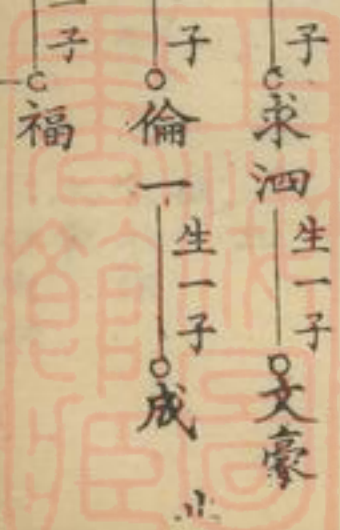 子
求泗
生一子
文豪
子
倫一
生一子
成
止
一子
福